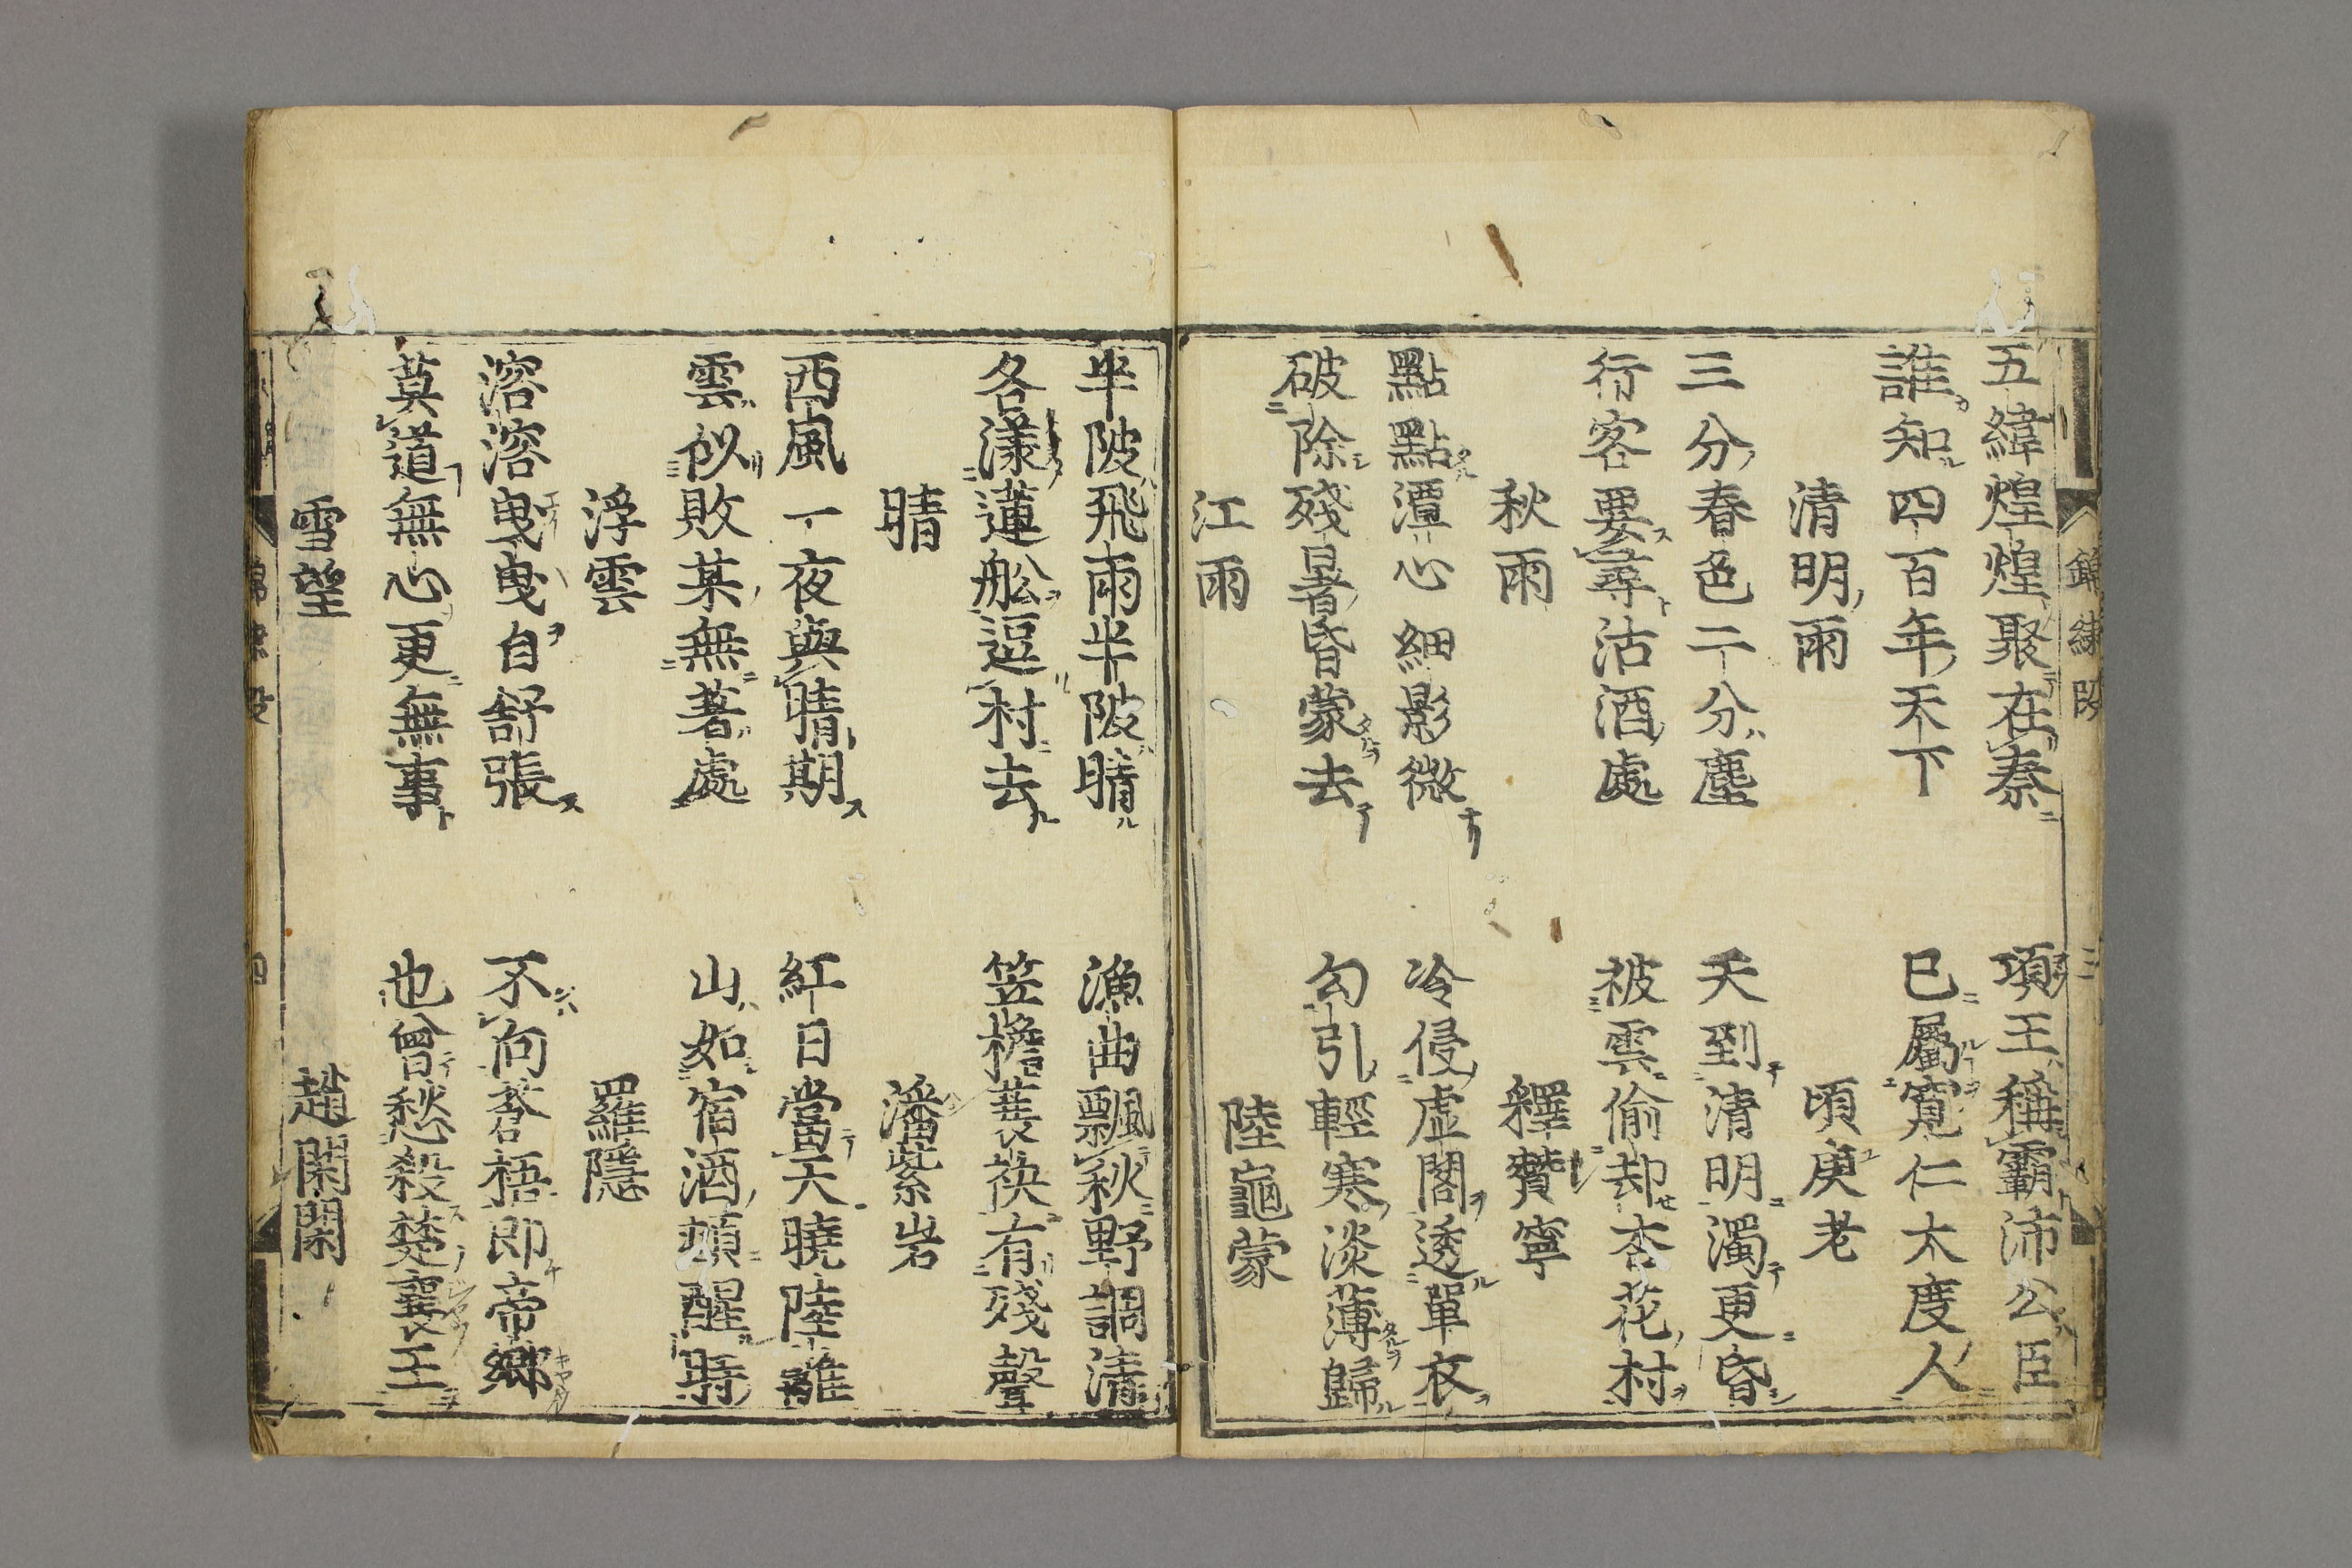 五緯煌煌聚在秦　項王稱霸沛公臣
誰知四百年天下　已屬寬仁大度人
清明雨　項庚老
三分春色二分塵　天到清明濁更昏
行客要尋沽酒處　被雲偷却杏花村
秋雨　釋贊寧
點點潭心細影微　冷侵虛閣透單衣
破除殘暑昏蒙去　勾引輕寒淡薄歸
江雨　陸龜蒙
半陂飛雨半陂晴　漁曲飄秋野調清
各漾蓮船逗村去　笠檐蓑袂有殘聲
晴　潘紫岩
西風一夜與晴期　紅日當天曉陸離
雲似敗棊無著處　山如宿酒頓醒時
浮雲　羅隱
溶溶曳曳自舒張　不向蒼梧即帝鄉
莫道無心更無事　也曾愁殺楚襄王
雪望　趙閑閑